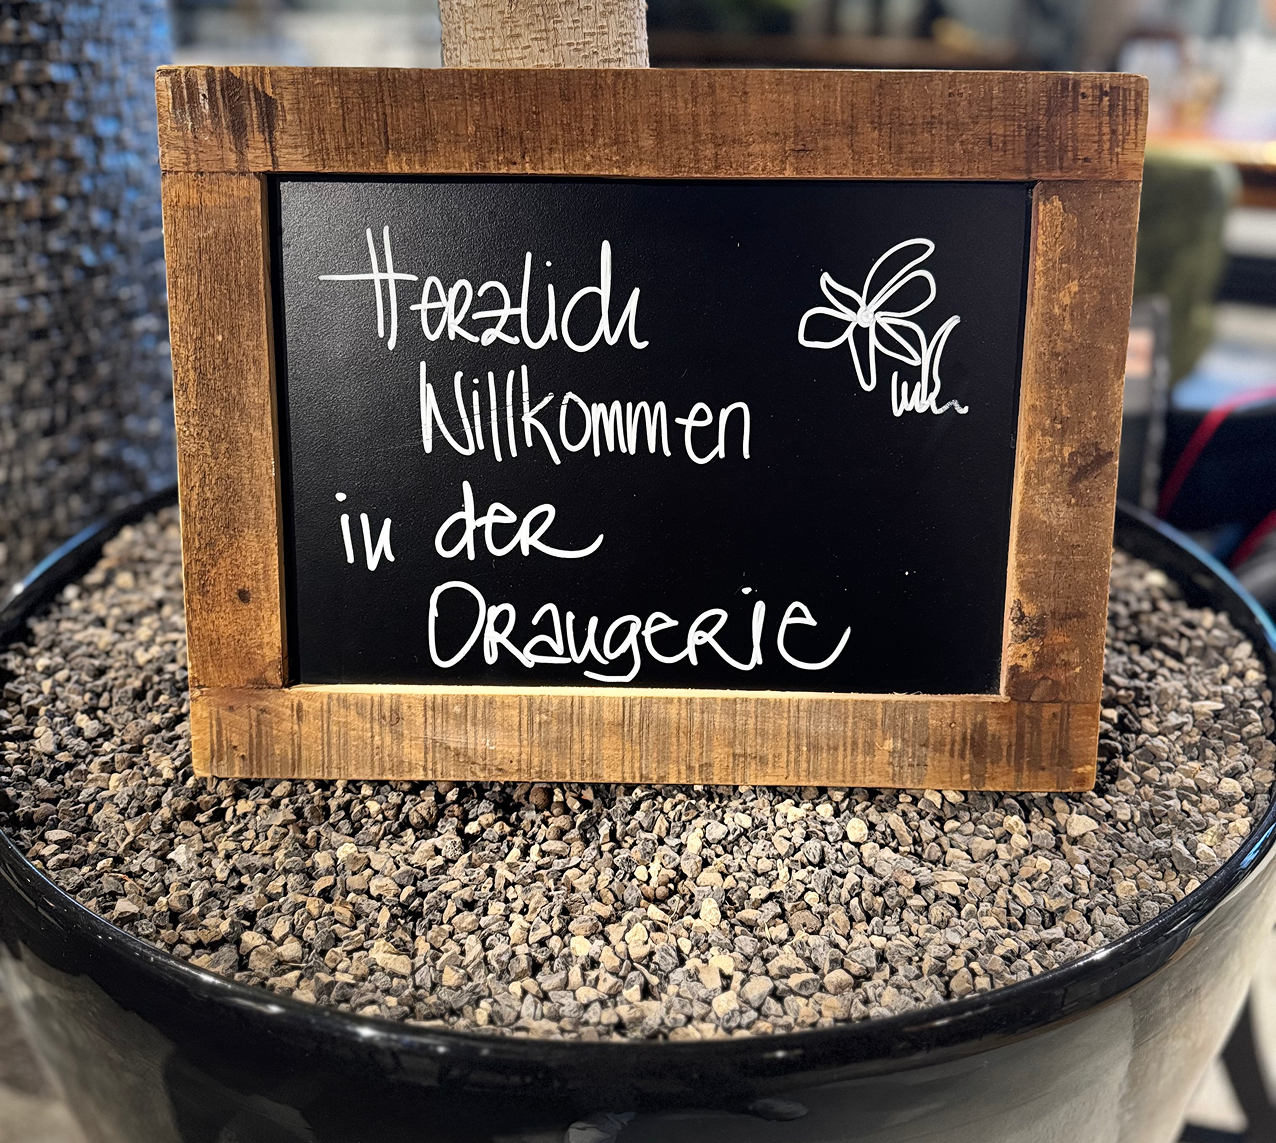 Herzlich
Willkommen
in der
Orangerie